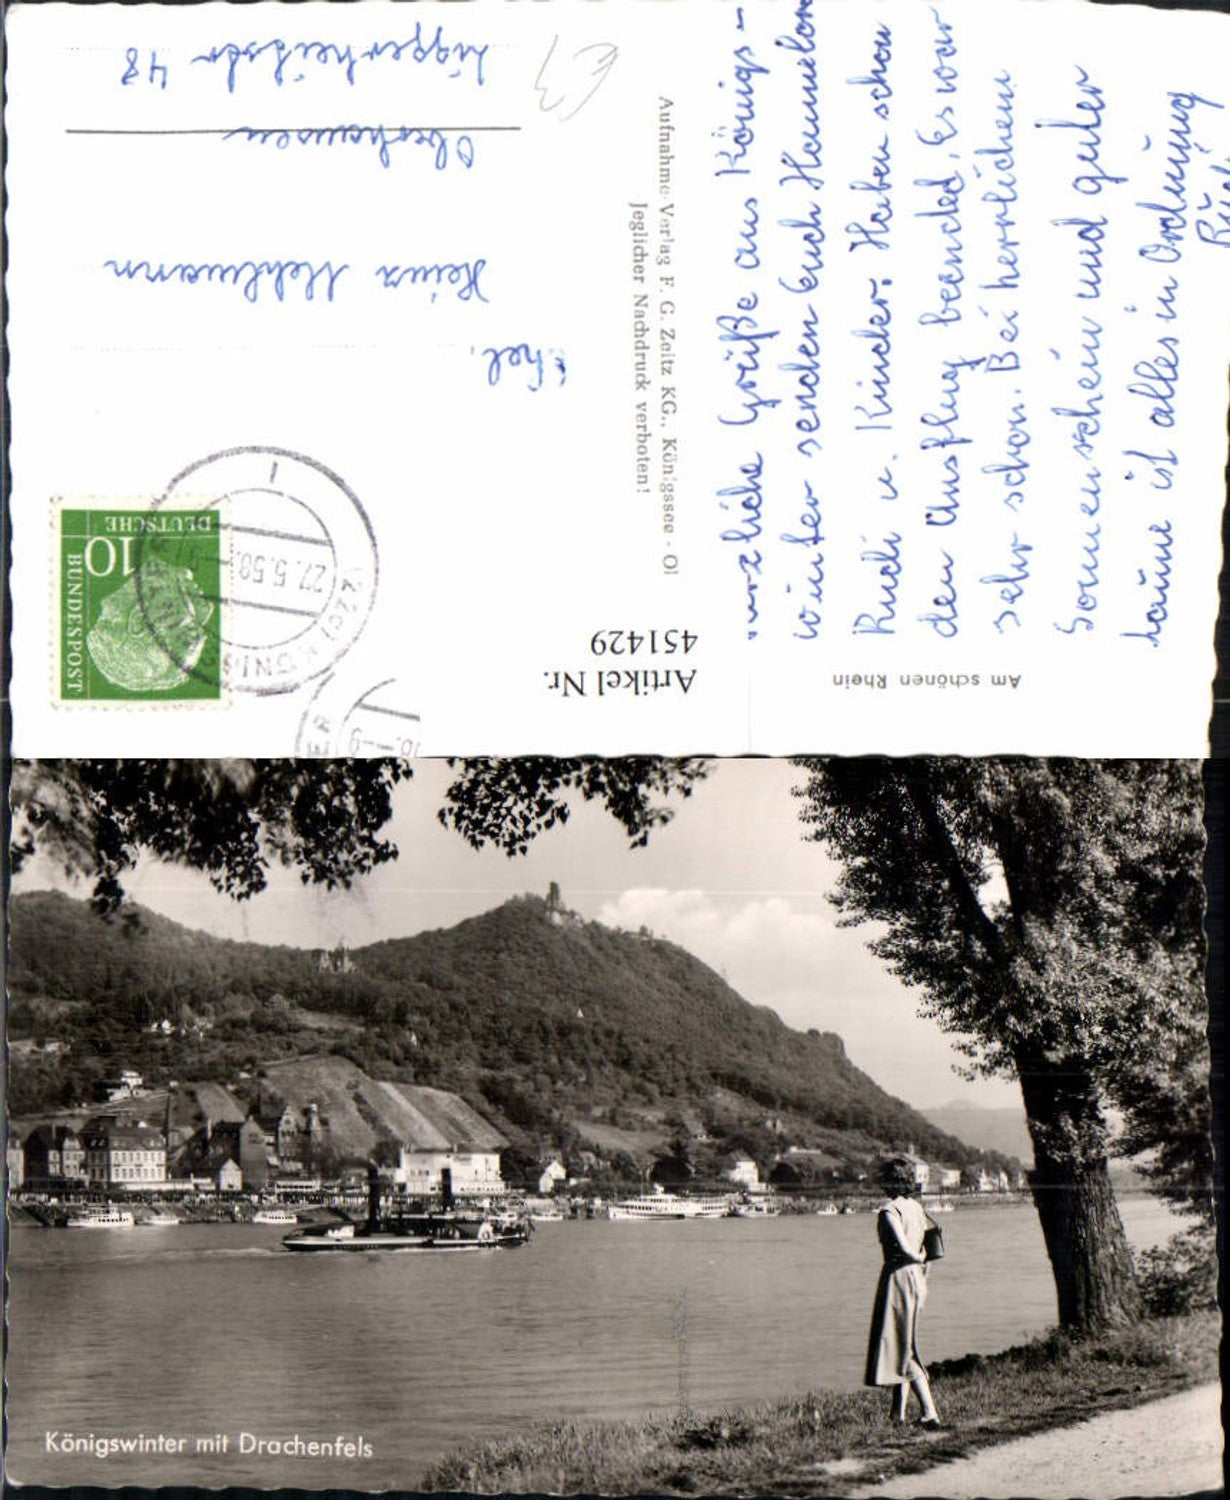 Herzliche Grüße aus Königs-
winter senden Euch Hannelore
Rudi u. Kinder. Haben schon
den Ausflug beendet. Es war
sehr schön. Bei herrlichem
Sonnenschein und guter
Laune ist alles in Ordnung
Am schönen Rhein
Artikel Nr.
451429
Aufnahme-Verlag F. G. Zeitz KG., Königssee - Ol
Jeglicher Nachdruck verboten!
DEUTSCHE
BUNDESPOST
10
27.5.58.
(22c) KÖNIGSWINTER
Ehel.
Heinz Mehlmann
Oberhausen
48
Königswinter mit Drachenfels